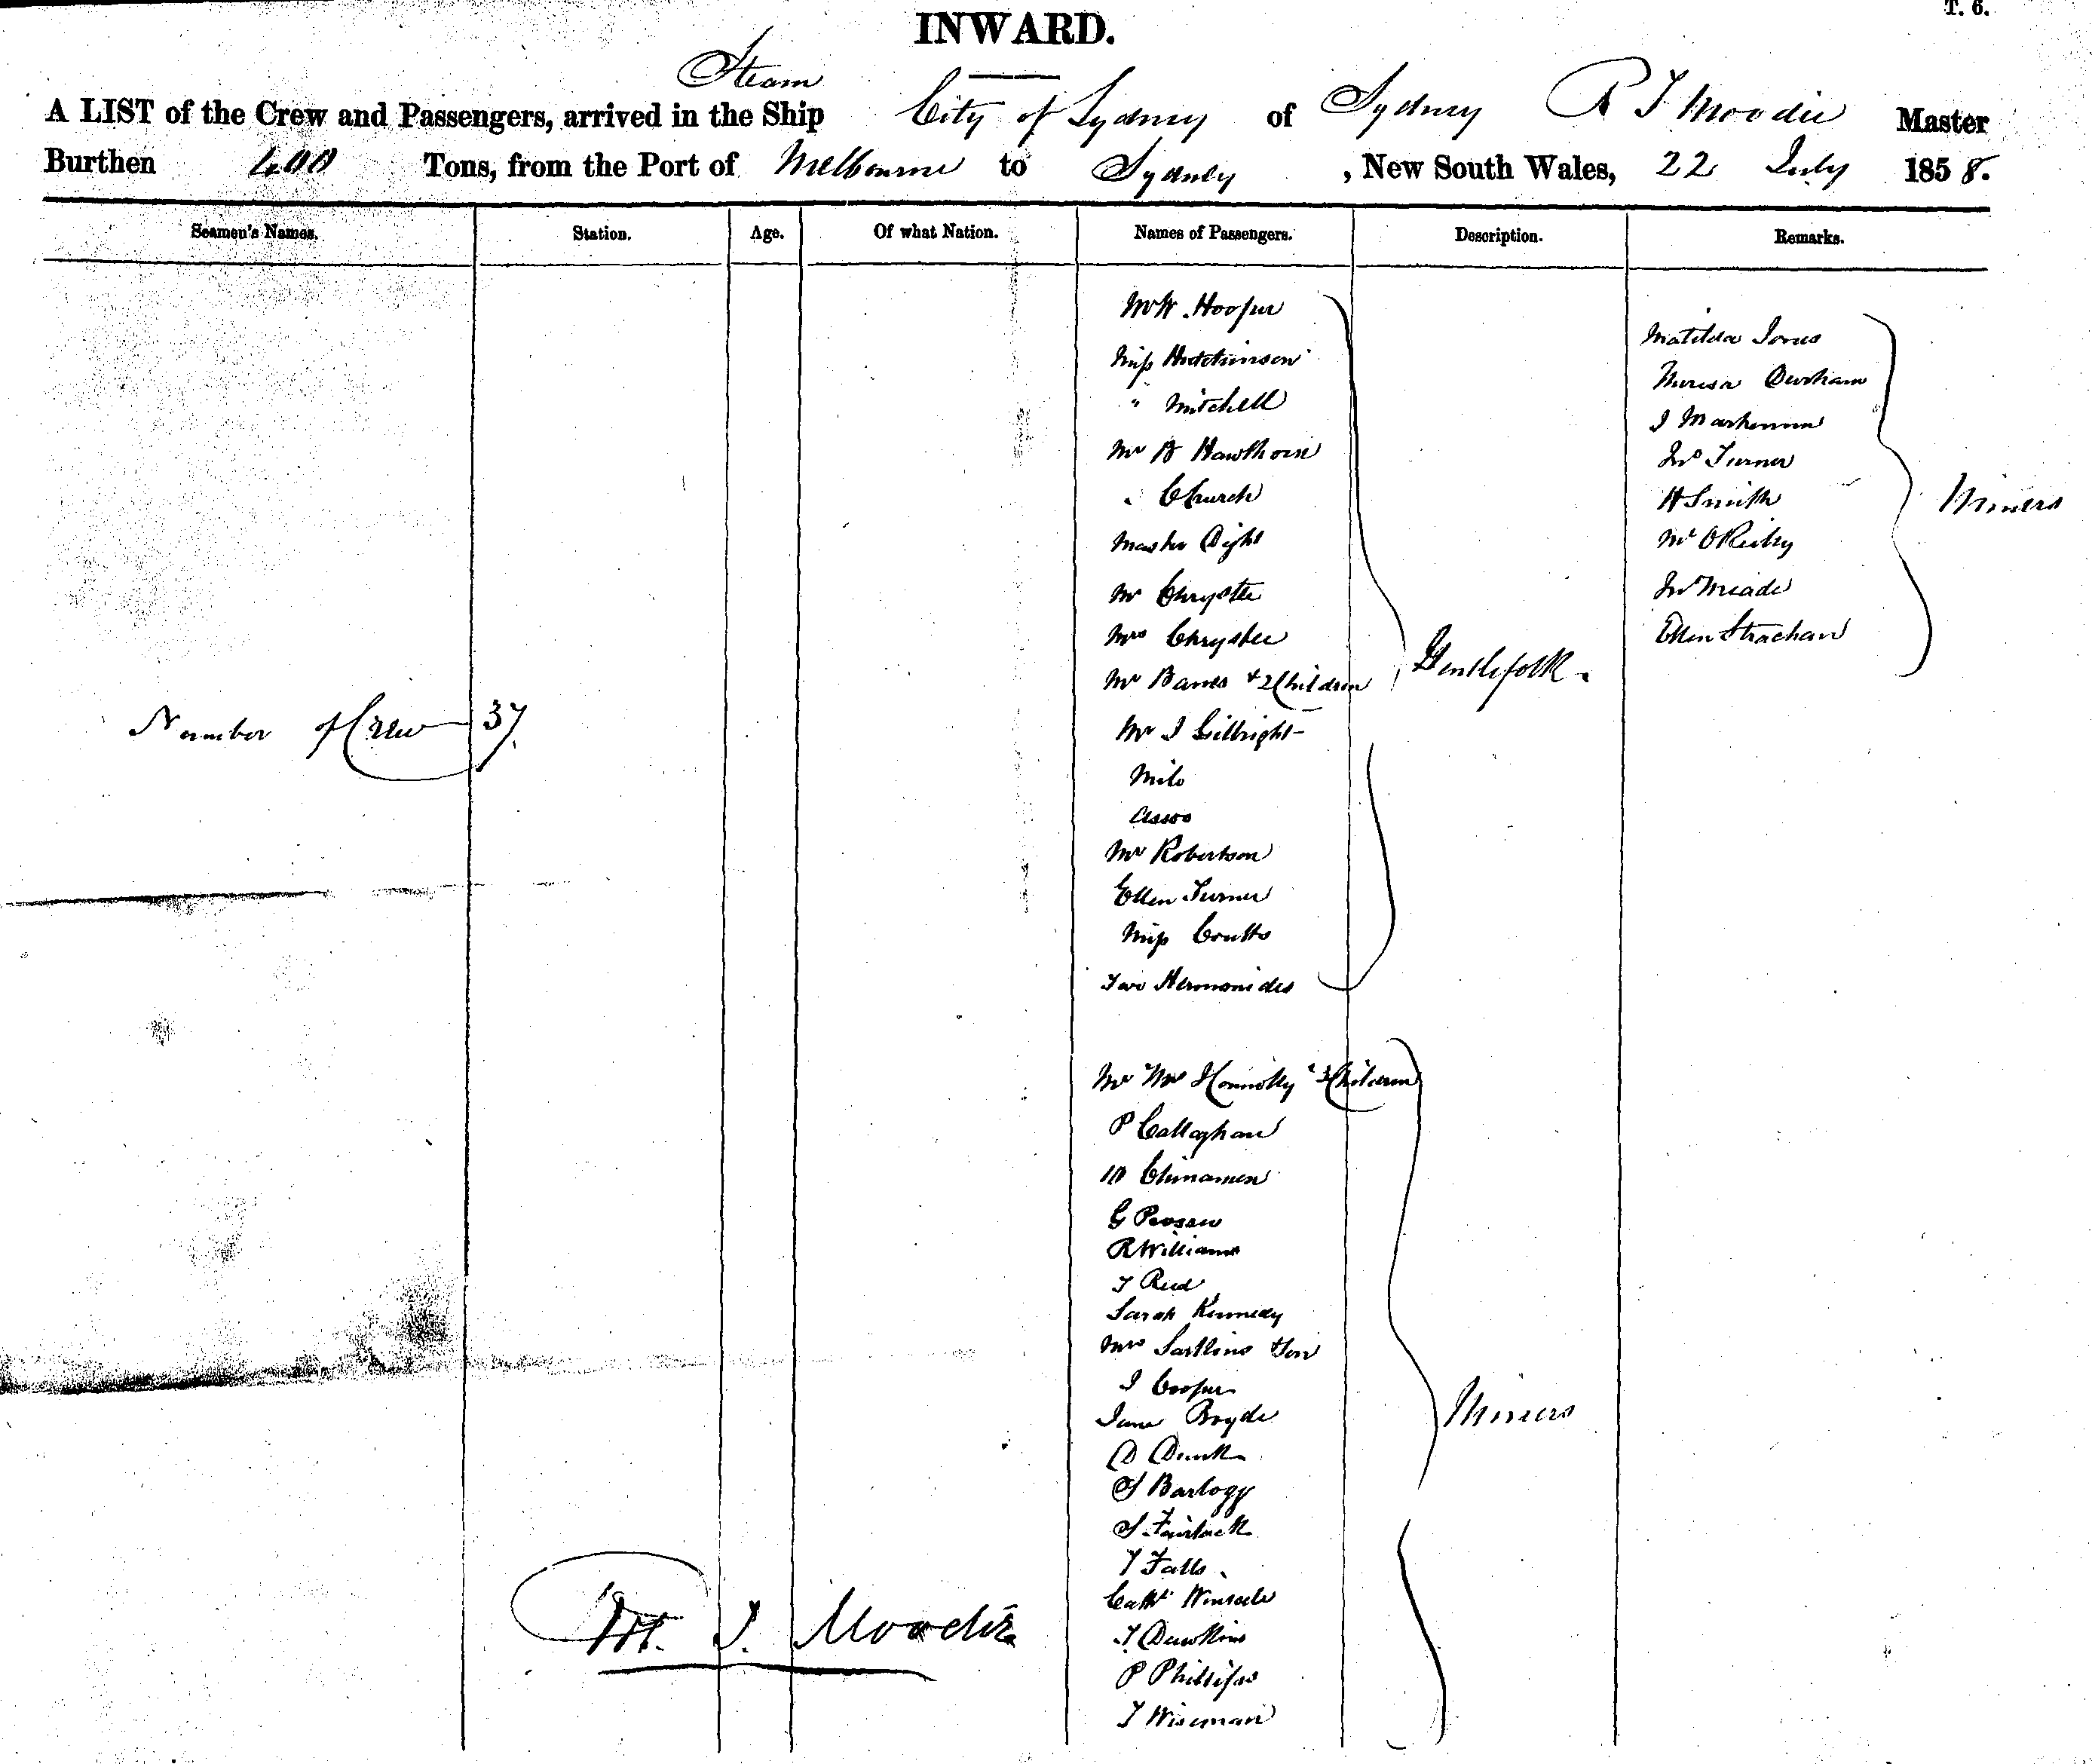 T. 6.
INWARD.
Steam
A LIST of the Crew and Passengers, arrived in the Ship City of Sydney of Sydney R T Moodie Master
Burthen 400 Tons, from the Port of Melbourne to Sydney, New South Wales, 22 July 1858.
Seamen's Names. Station. Age. Of what Nation. Names of Passengers. Description. Remarks.
Number of Crew 37
Mr W. Hooper
Miss Hutchinson
" Mitchell
Mr B Hawthorn
" Church
Master Dight
Mr Chrystee
Mrs Chrystee
Mr Banes + 2 Children
Gentlefolk.
Mr J Gilbright
Milo
Mr Robertson
Ellen Turner
Miss Coutts
Two Hermanides
Mr Mrs Connolly 3 Children
P Callaghan
10 Chinamen
G
R Williams
T Reid
Sarah Kennedy
Mrs & Son
J Cooper
Jane Bryde
D Dunk
S
S
T Falls
Cath
T Dawkins
P Phillips
T Wiseman
Miners
Matilda Jones
Theresa Durham
J
Jno Turner
H Smith
Mr O'Reilly
Jno Meade
Ellen Strachan
Miners
T. Moodie